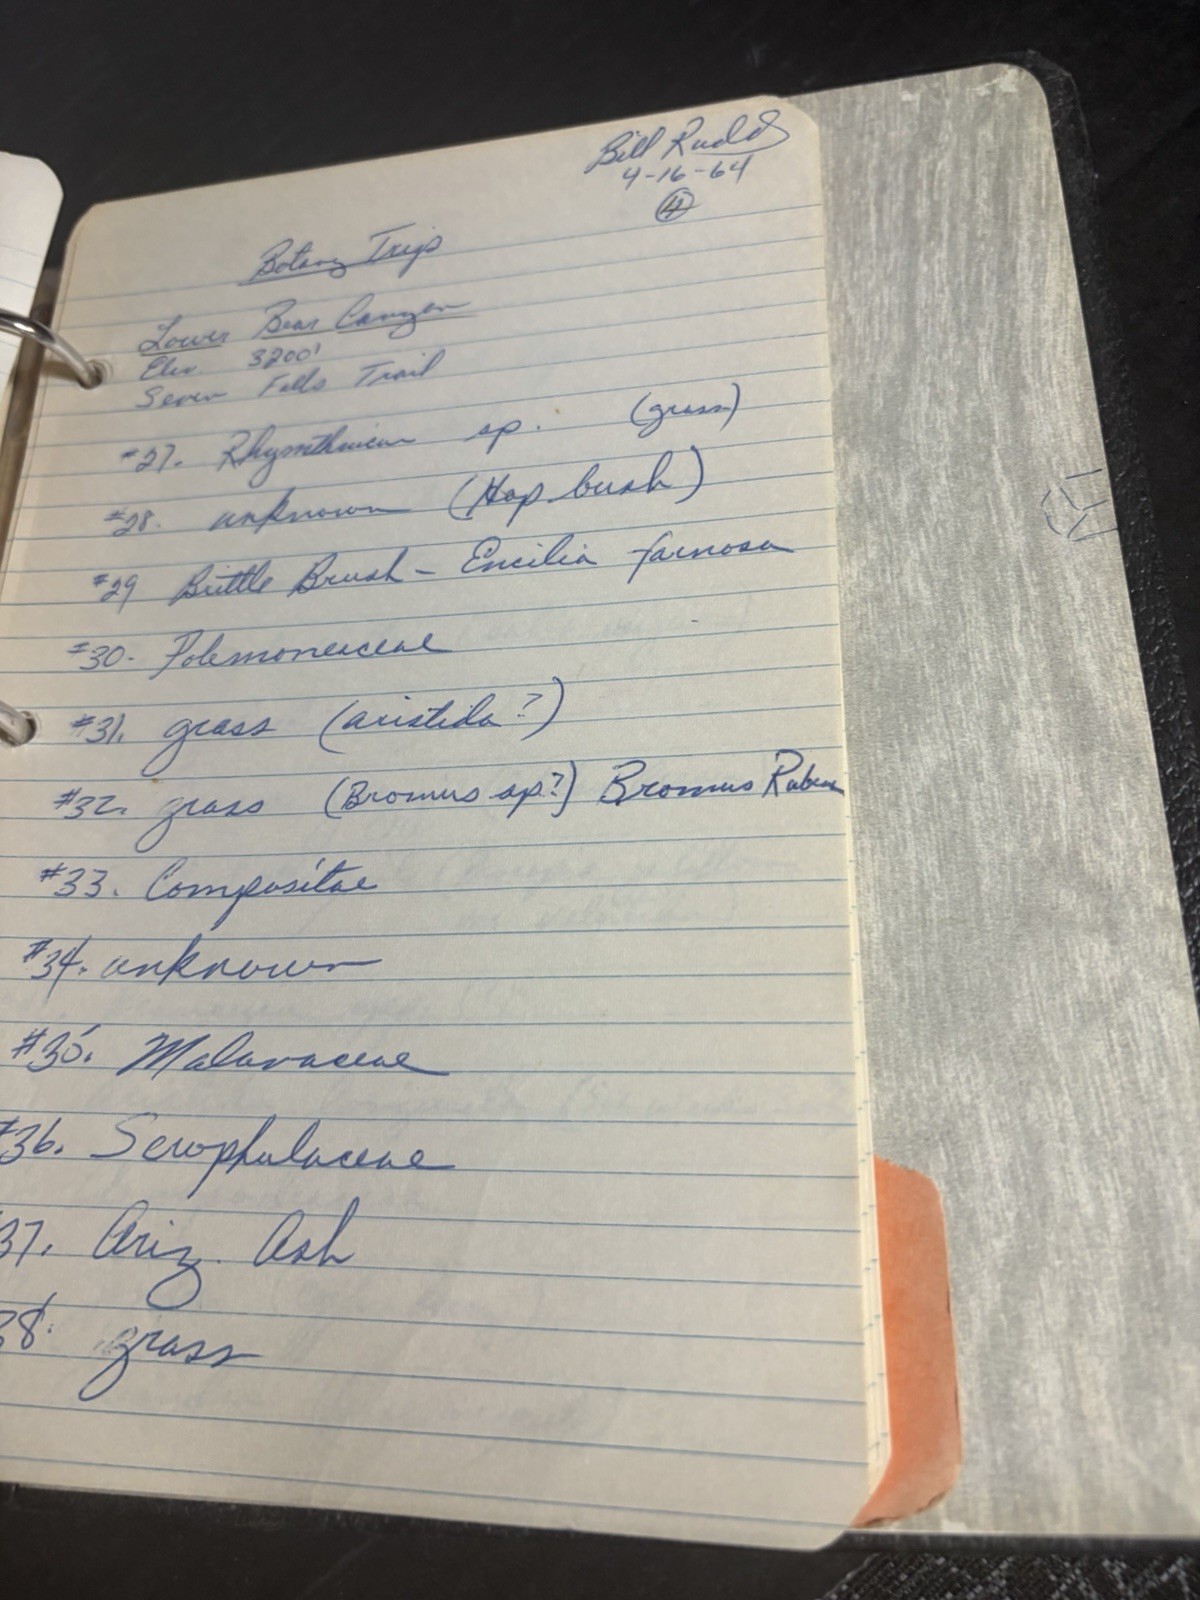 Bill Rudd
4-16-64
4
Botany Trip
Lower Bear Canyon
Elev. 3200'
Seven Falls Trail
#27. sp. (grass)
#28. unknown (Hop bush)
#29 Brittle Brush - Encilia farnosa
#30. Polemoneaceae
#31. grass (aristida?)
#32. grass (Bromus sp?) Bromus Ruben
#33. Compositae
#34. unknown
#35. Malavaceae
#36. Scrophulaceae
37. Ariz. Ash
38. grass